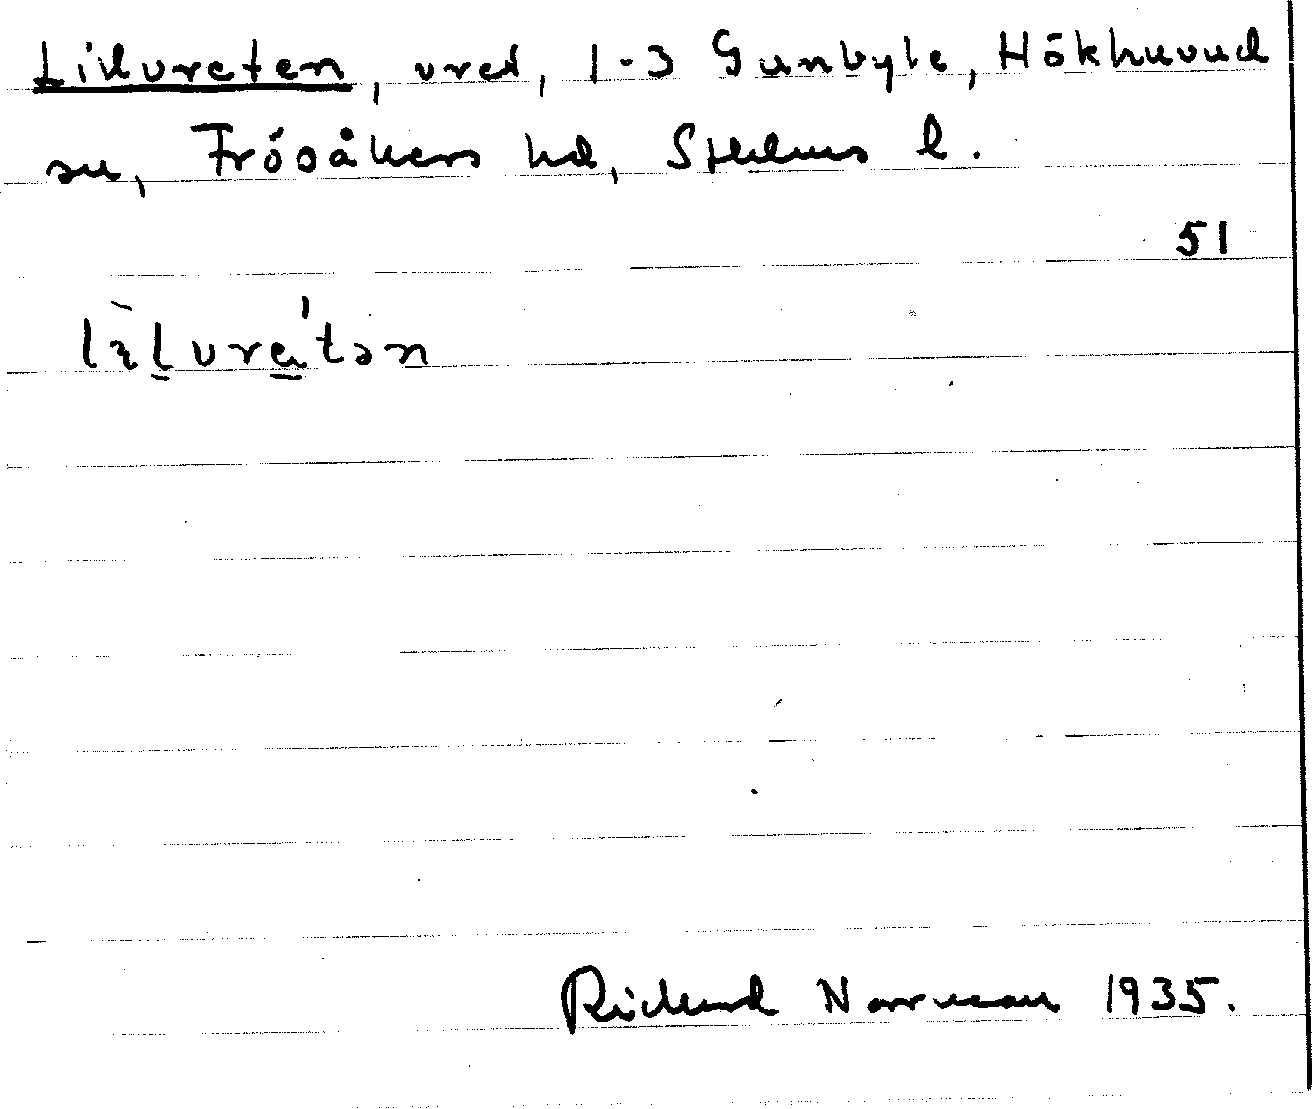 Lillvreten, vret, 1-3 Gunbyle, Hökhuvud
sn, Frösåkers hd, Sthlms l.
51
Richard Norrman 1935.